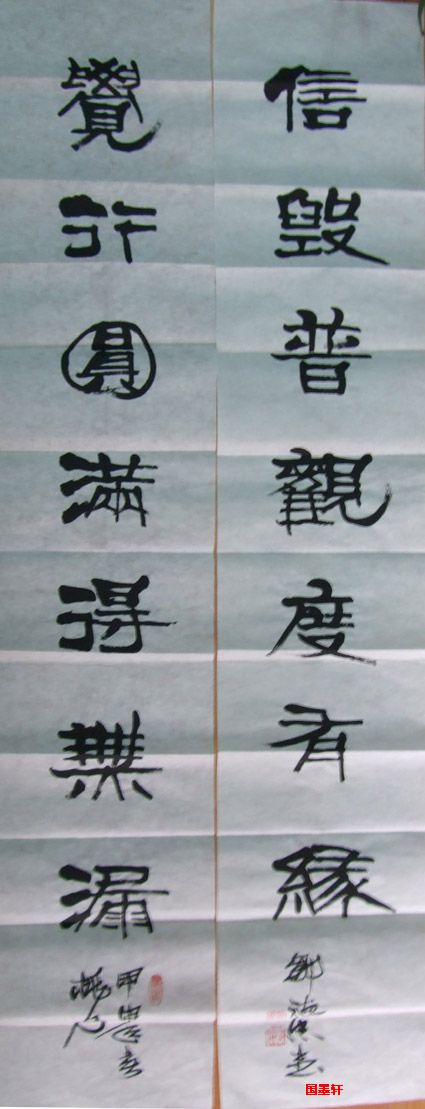 信毀普觀度有緣
覺行圓滿得無漏
国墨轩